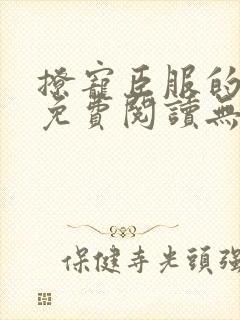 撩寵臣服的
免費閱讀無
保健寺光頭強